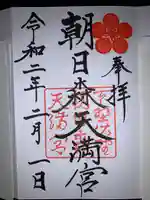 奉拝
朝日森天満宮
令和二年二月一日
天満宮